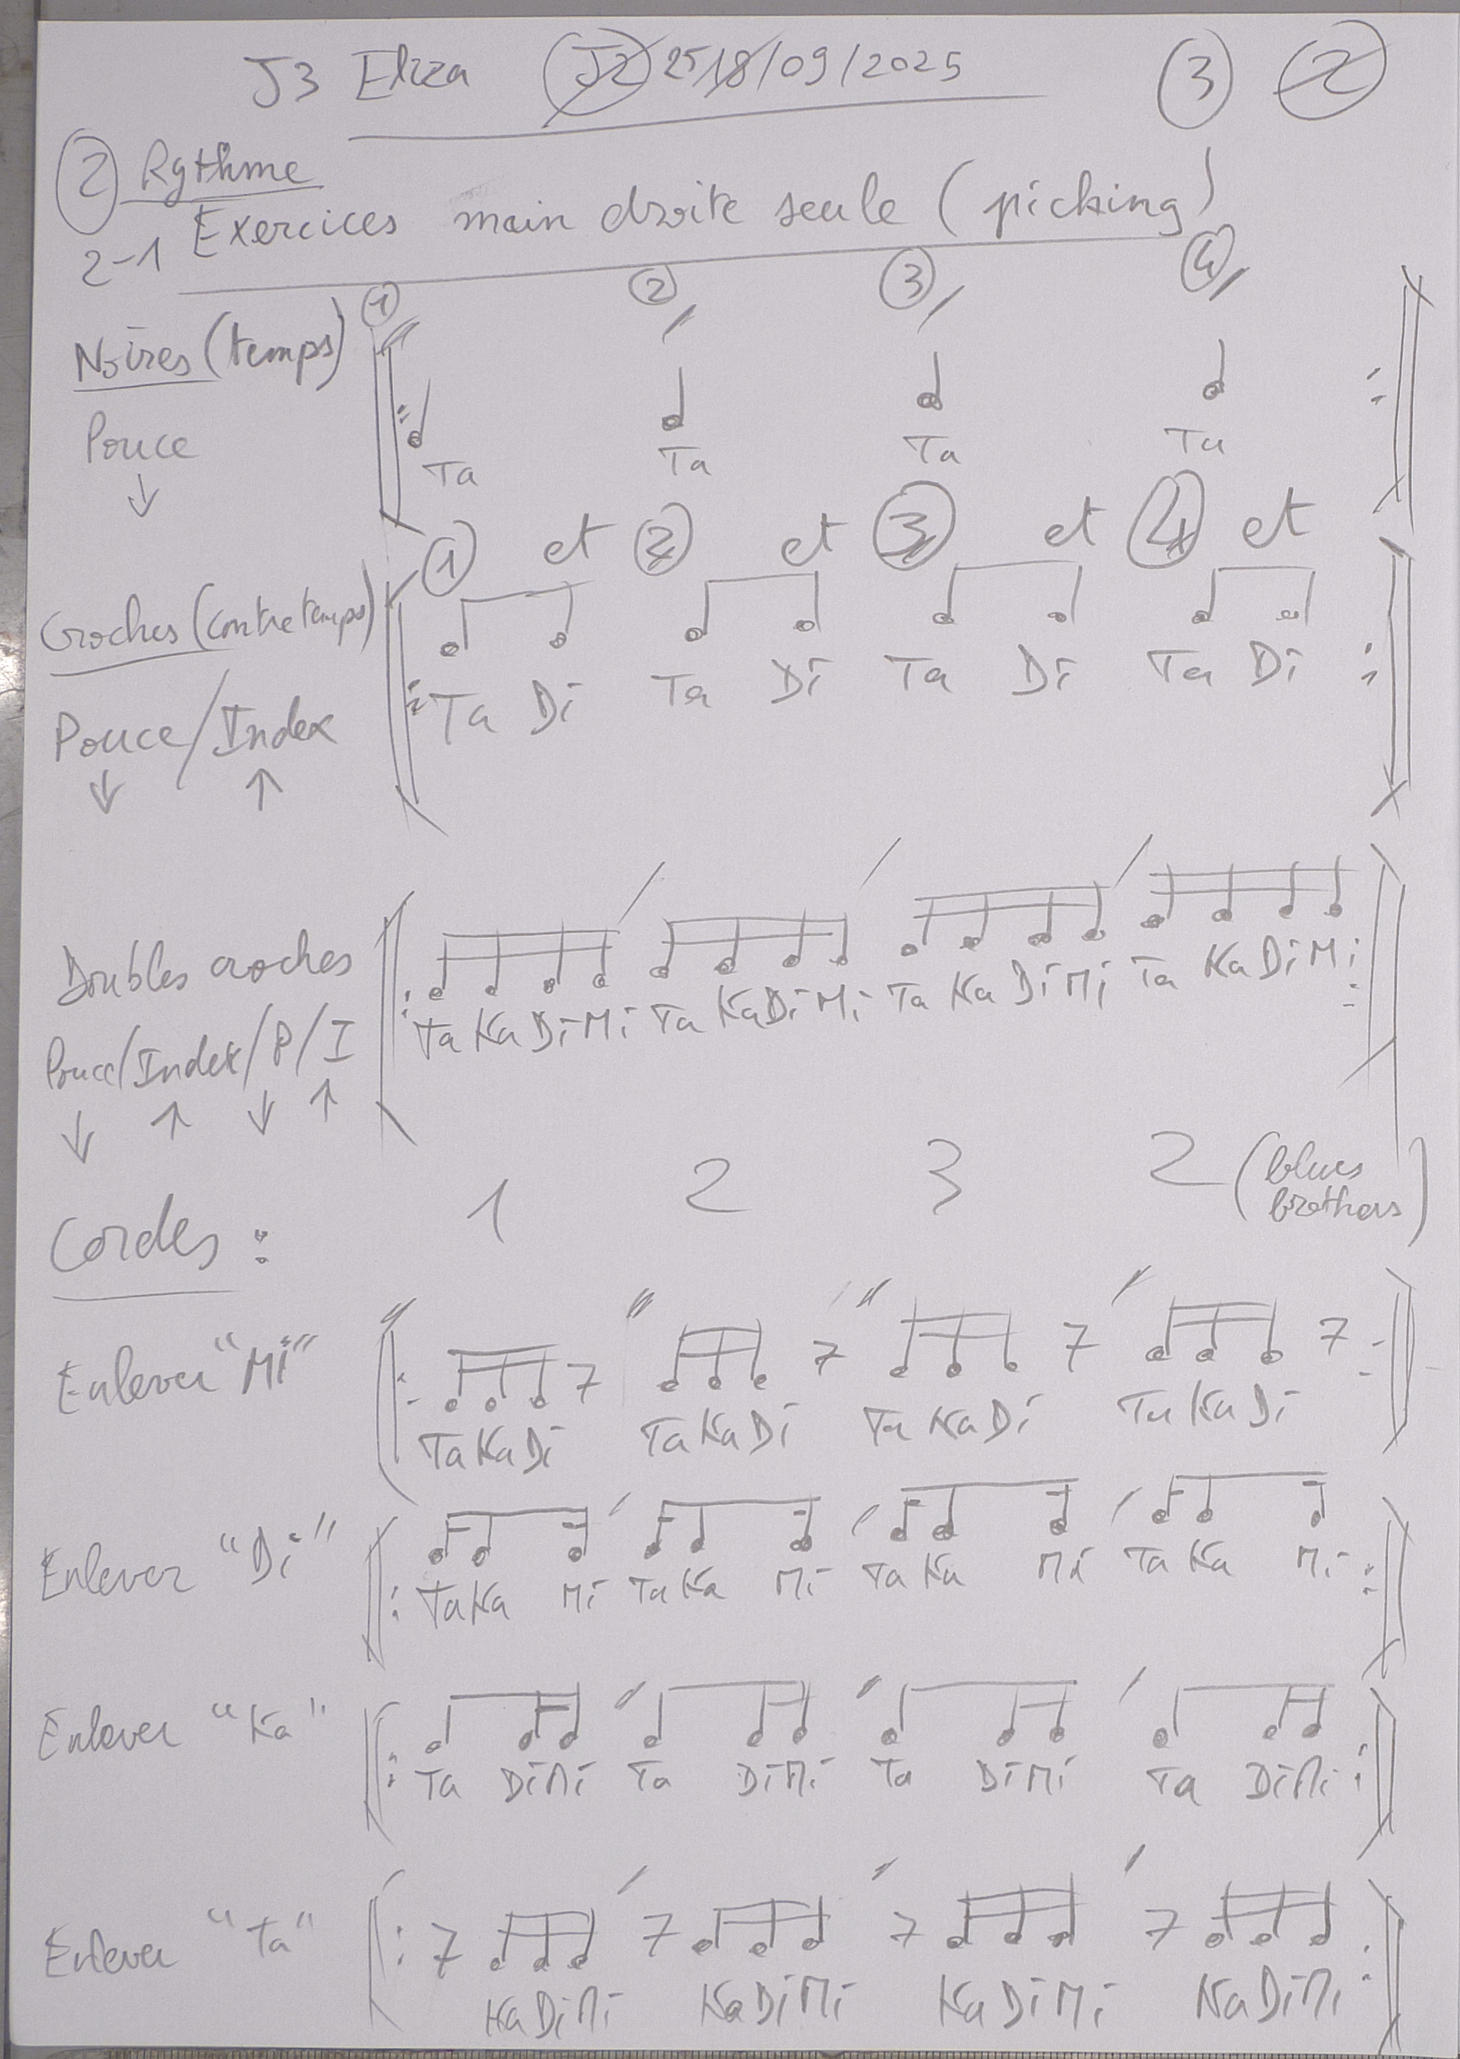 J3 Eliza J2 25 18/09/2025 3 2
2 Rythme
2-1 Exercices main droite seule (picking)
1 2 3 4
Noires (temps)
Pouce
↓
Ta Ta Ta Ta
1 et 2 et 3 et 4 et
Croches (contretemps)
Ta Di Ta Di Ta Di Ta Di
Pouce/Index
↓ ↑
Doubles croches
Ta Ka Di Mi Ta Ka Di Mi Ta Ka Di Mi Ta Ka Di Mi
Pouce/Index/P/I
↓ ↑ ↓ ↑
Cordes : 1 2 3 2 (blues brothers)
Enlever "Mi"
Ta Ka Di Ta Ka Di Ta Ka Di Ta Ka Di
Enlever "Di"
Ta Ka Mi Ta Ka Mi Ta Ka Mi Ta Ka Mi
Enlever "Ka"
Ta Di Mi Ta Di Mi Ta Di Mi Ta Di Mi
Enlever "Ta"
Ka Di Mi Ka Di Mi Ka Di Mi Ka Di Mi